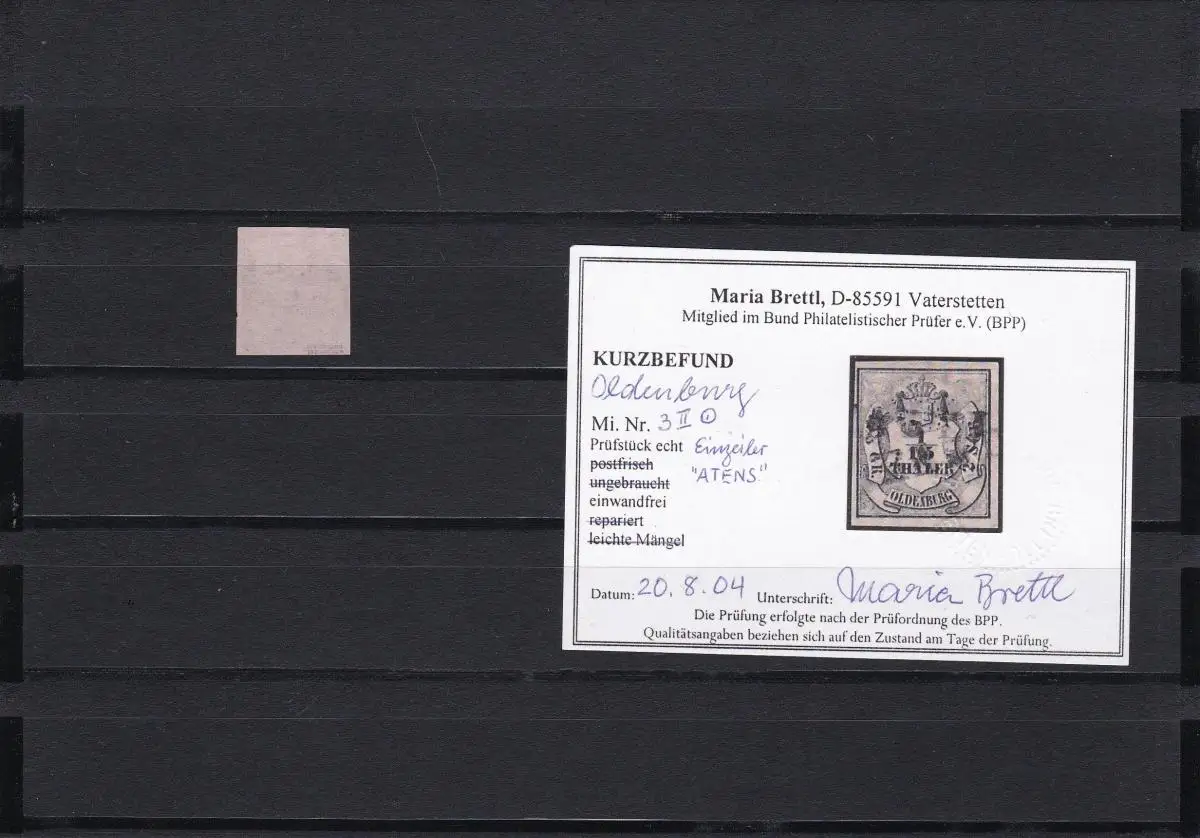 Maria Brettl, D-85591 Vaterstetten
Mitglied im Bund Philatelistischer Prüfer e.V. (BPP)
KURZBEFUND
Oldenburg
Mi. Nr. 3 II
Prüfstück echt Einzeiler
postfrisch "ATENS."
ungebraucht
einwandfrei
repariert
leichte Mängel
1/15
THALER
OLDENBURG
Datum: 20.8.04 Unterschrift: Maria Brettl
Die Prüfung erfolgte nach der Prüfordnung des BPP.
Qualitätsangaben beziehen sich auf den Zustand am Tage der Prüfung.